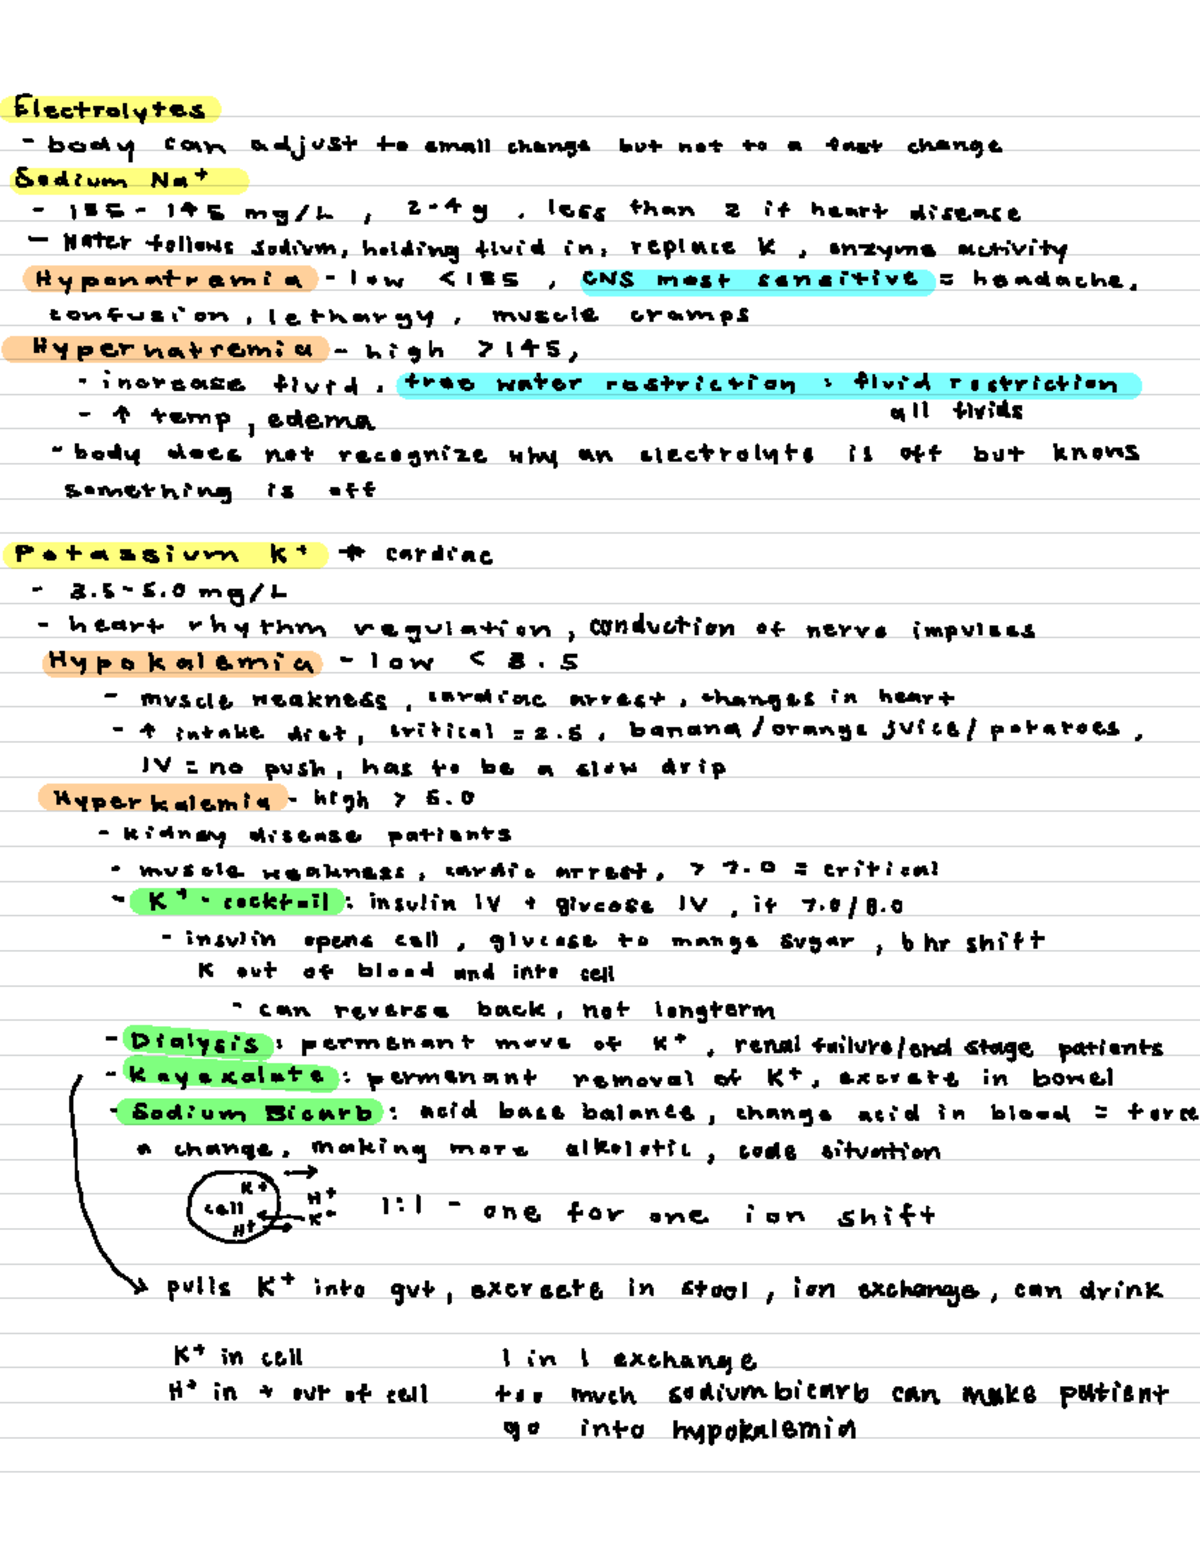 Electrolytes
- body can adjust to small change but not to a fast change
Sodium Na+
- 135-145 mg/L, 2-4g, less than 2 if heart disease
- Water follows sodium, holding fluid in, replace K, enzyme activity
Hyponatremia - low <135, CNS most sensitive = headache,
confusion, lethargy, muscle cramps
Hypernatremia - high >145,
- increase fluid, free water restriction : fluid restriction
all fluids
- ↑ temp, edema
- body does not recognize why an electrolyte is off but knows
something is off
Potassium K+ * cardiac
- 3.5-5.0 mg/L
- heart rhythm regulation, conduction of nerve impulses
Hypokalemia - low < 3.5
- muscle weakness, cardiac arrest, changes in heart
- ↑ intake diet, critical = 2.5, banana/orange juice/potatoes,
IV = no push, has to be a slow drip
Hyperkalemia - high > 5.0
- kidney disease patients
- muscle weakness, cardic arrest, > 7.0 = critical
- K+ - cocktail : insulin IV + glucose IV, if 7.0/8.0
- insulin opens cell, glucose to mange sugar, 6 hr shift
K out of blood and into cell
- can reverse back, not longterm
- Dialysis : permenant move of K+, renal failure/end stage patients
- Kayexalate : permenant removal of K+, excrete in bowel
- Sodium Bicarb : acid base balance, change acid in blood = force
a change, making more alkolotic, code situation
K+ →
cell H+
H+ K+ 1:1 - one for one ion shift
pulls K+ into gut, excreete in stool, ion exchange, can drink
K+ in cell 1 in 1 exchange
H+ in + out of cell too much sodium bicarb can make patient
go into hypokalemia